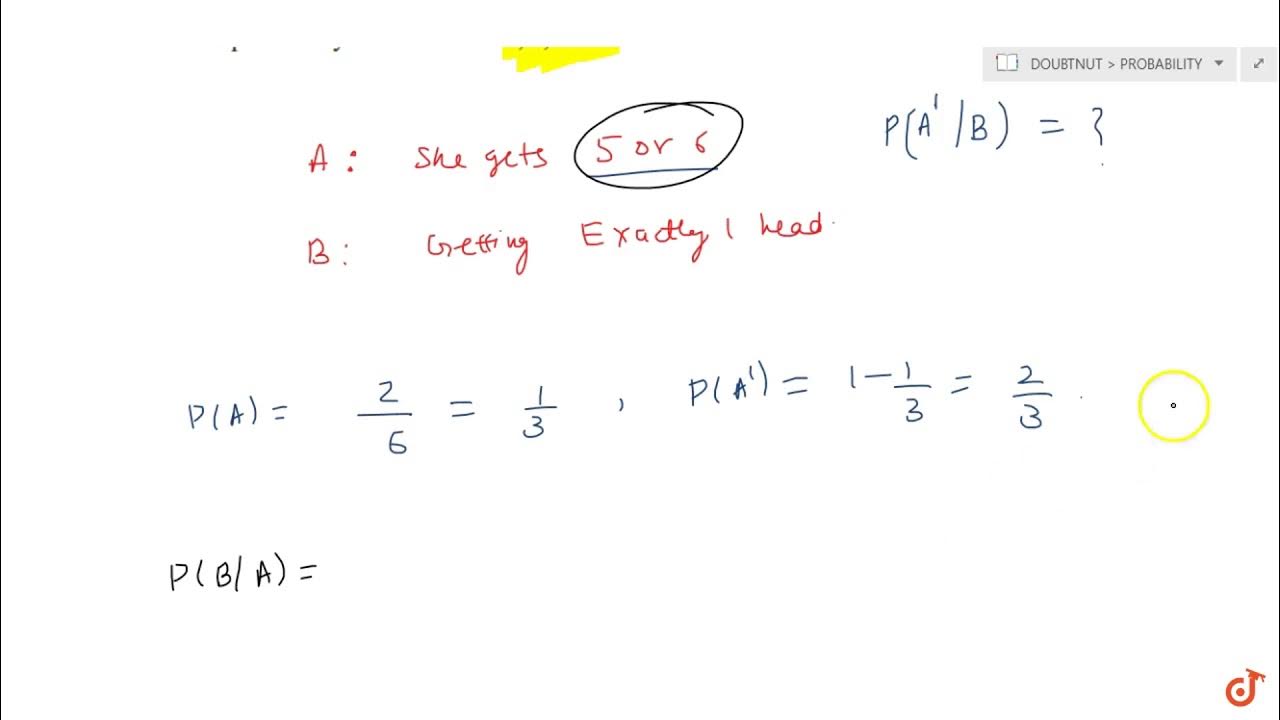 DOUBTNUT > PROBABILITY
P(A'/B) = ?
A: She gets 5 or 6
B: Getting Exactly 1 head.
P(A) = 2/6 = 1/3 , P(A') = 1 - 1/3 = 2/3 .
P(B/A) =